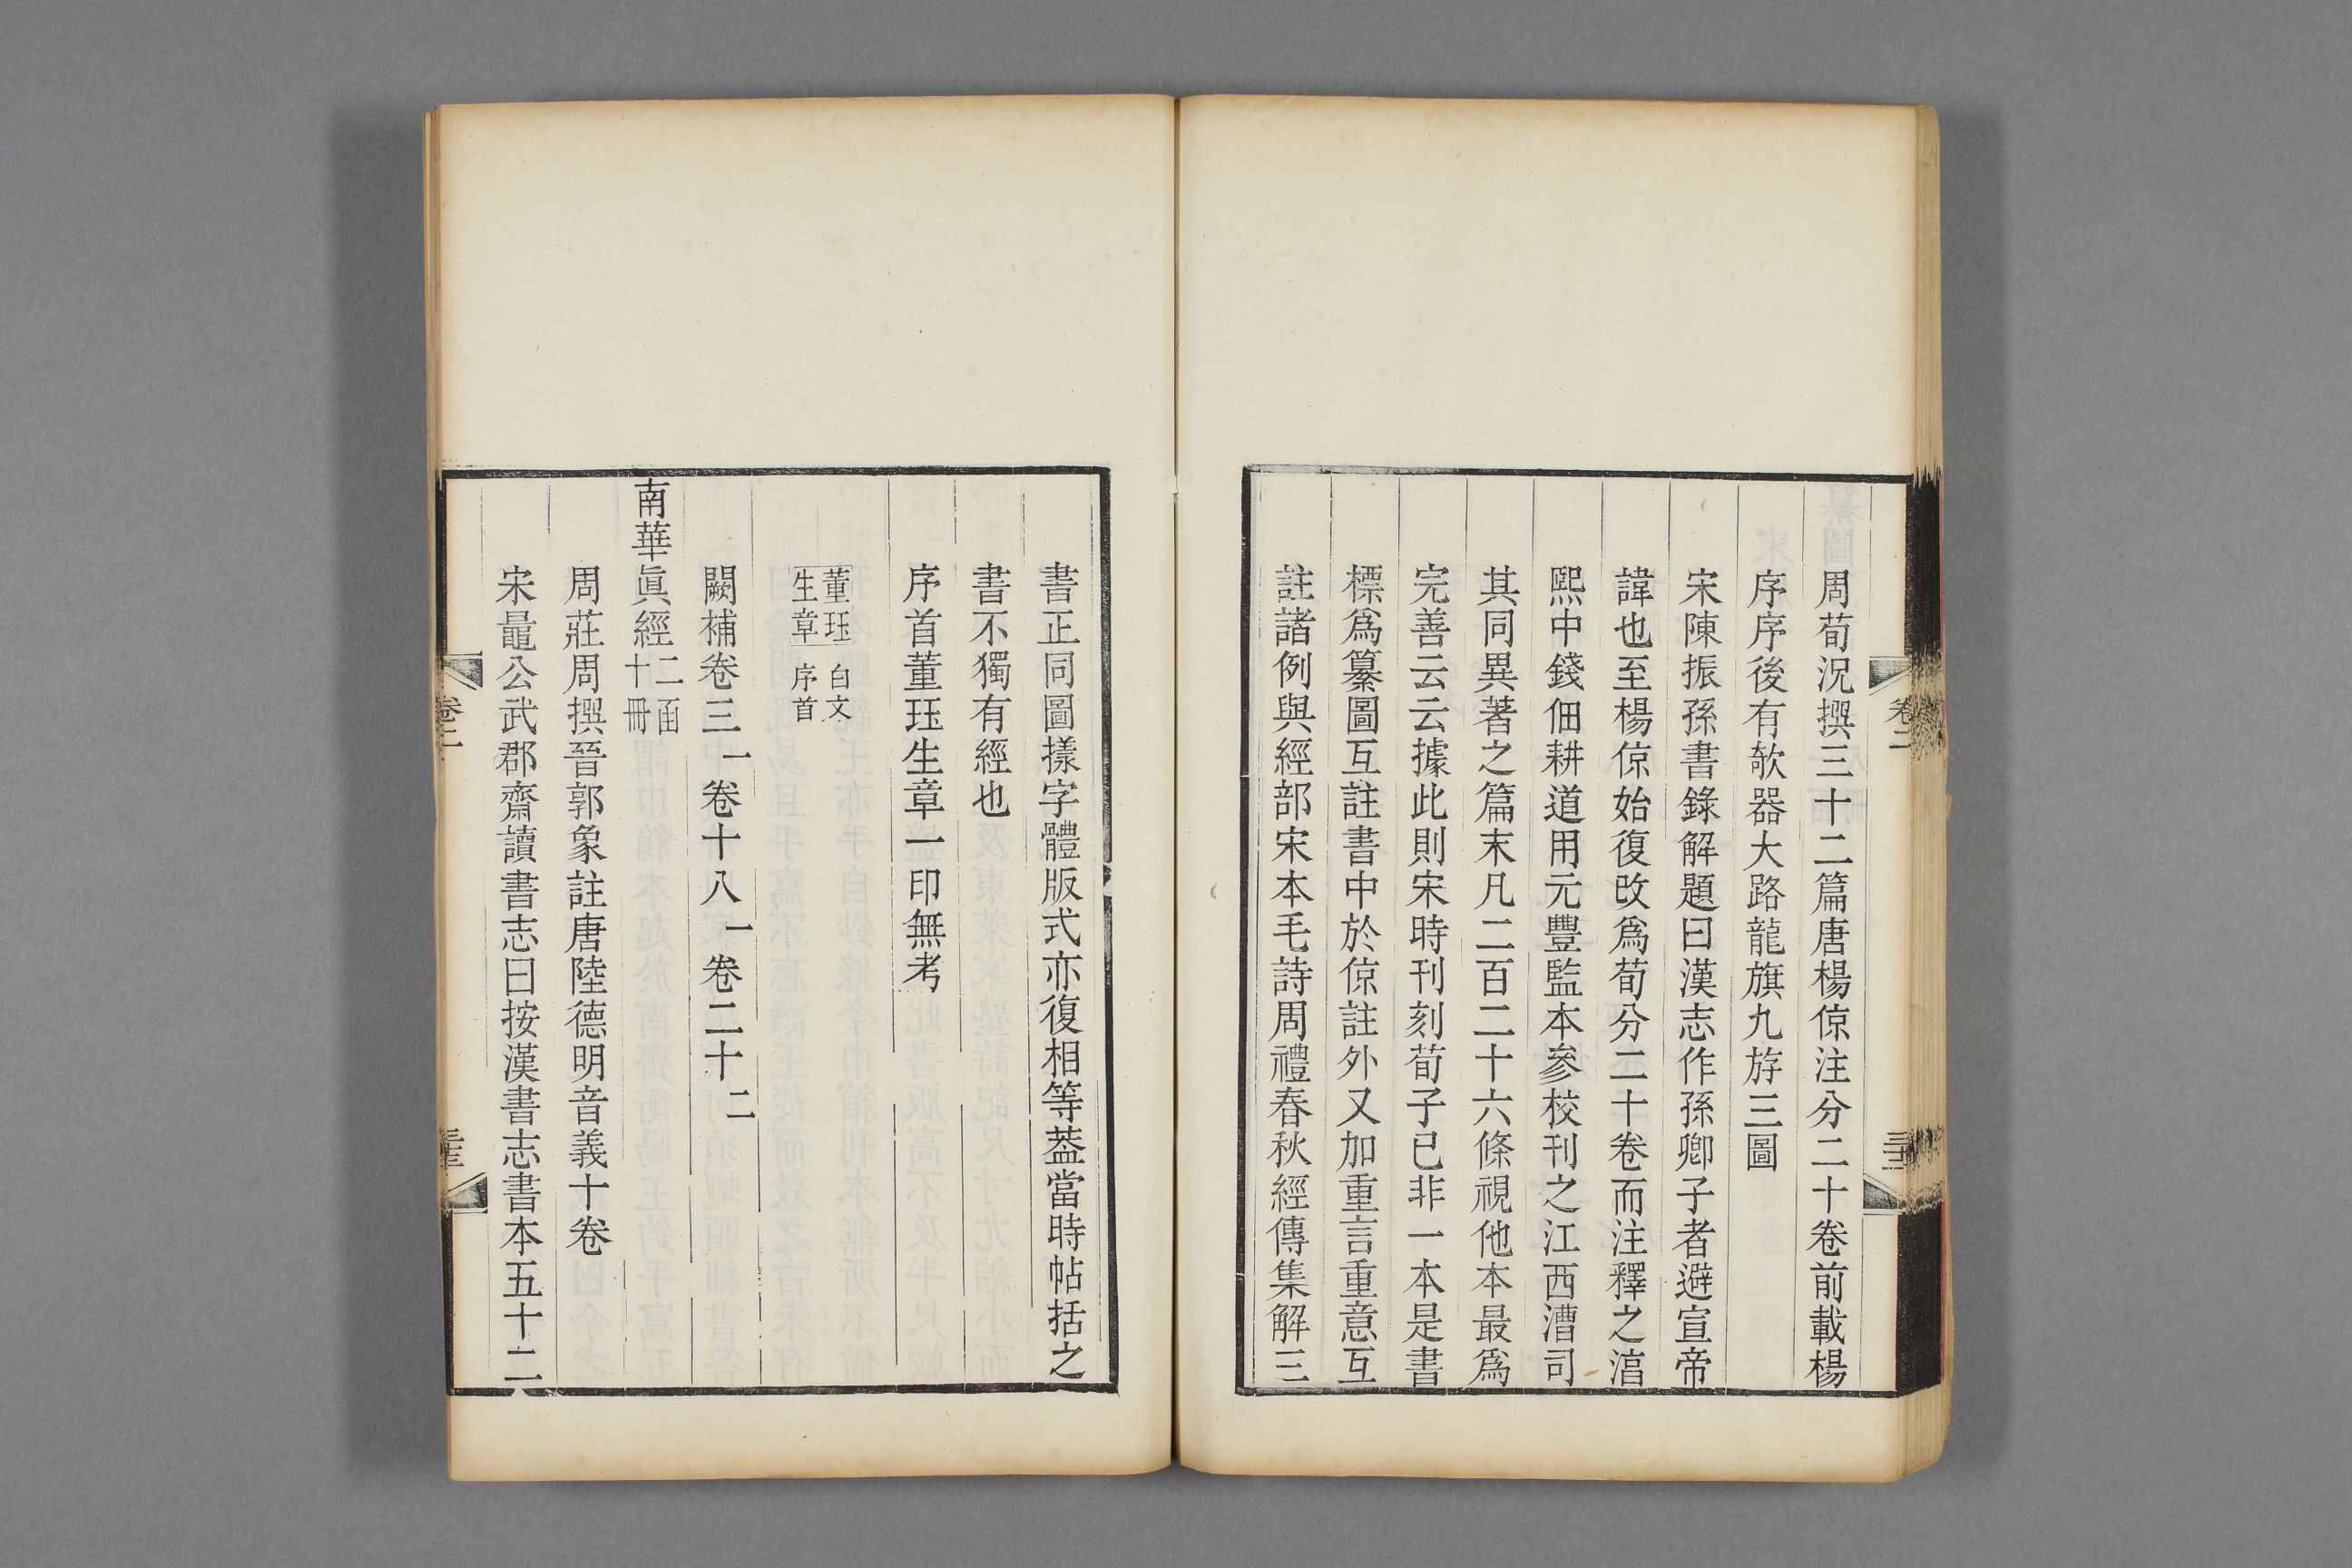 周荀況撰三十二篇唐楊倞注分二十卷前載楊
序序後有欹器大路龍旗九斿三圖
宋陳振孫書錄解題曰漢志作孫卿子者避宣帝
諱也至楊倞始復改爲荀分二十卷而注釋之淳
熙中錢佃耕道用元豐監本參校刊之江西漕司
其同異著之篇末凡二百二十六條視他本最爲
完善云云據此則宋時刊刻荀子已非一本是書
標爲纂圖互註書中於倞註外又加重言重意互
註諸例與經部宋本毛詩周禮春秋經傳集解三
卷二
書正同圖樣字體版式亦復相等葢當時帖括之
書不獨有經也
序首董珏生章一印無考
董珏生章 白文 序首
闕補卷三 一 卷十八 一 卷二十 二
南華眞經 二函十冊
周莊周撰晉郭象註唐陸德明音義十卷
宋鼂公武郡齋讀書志曰按漢書志書本五十二
卷二